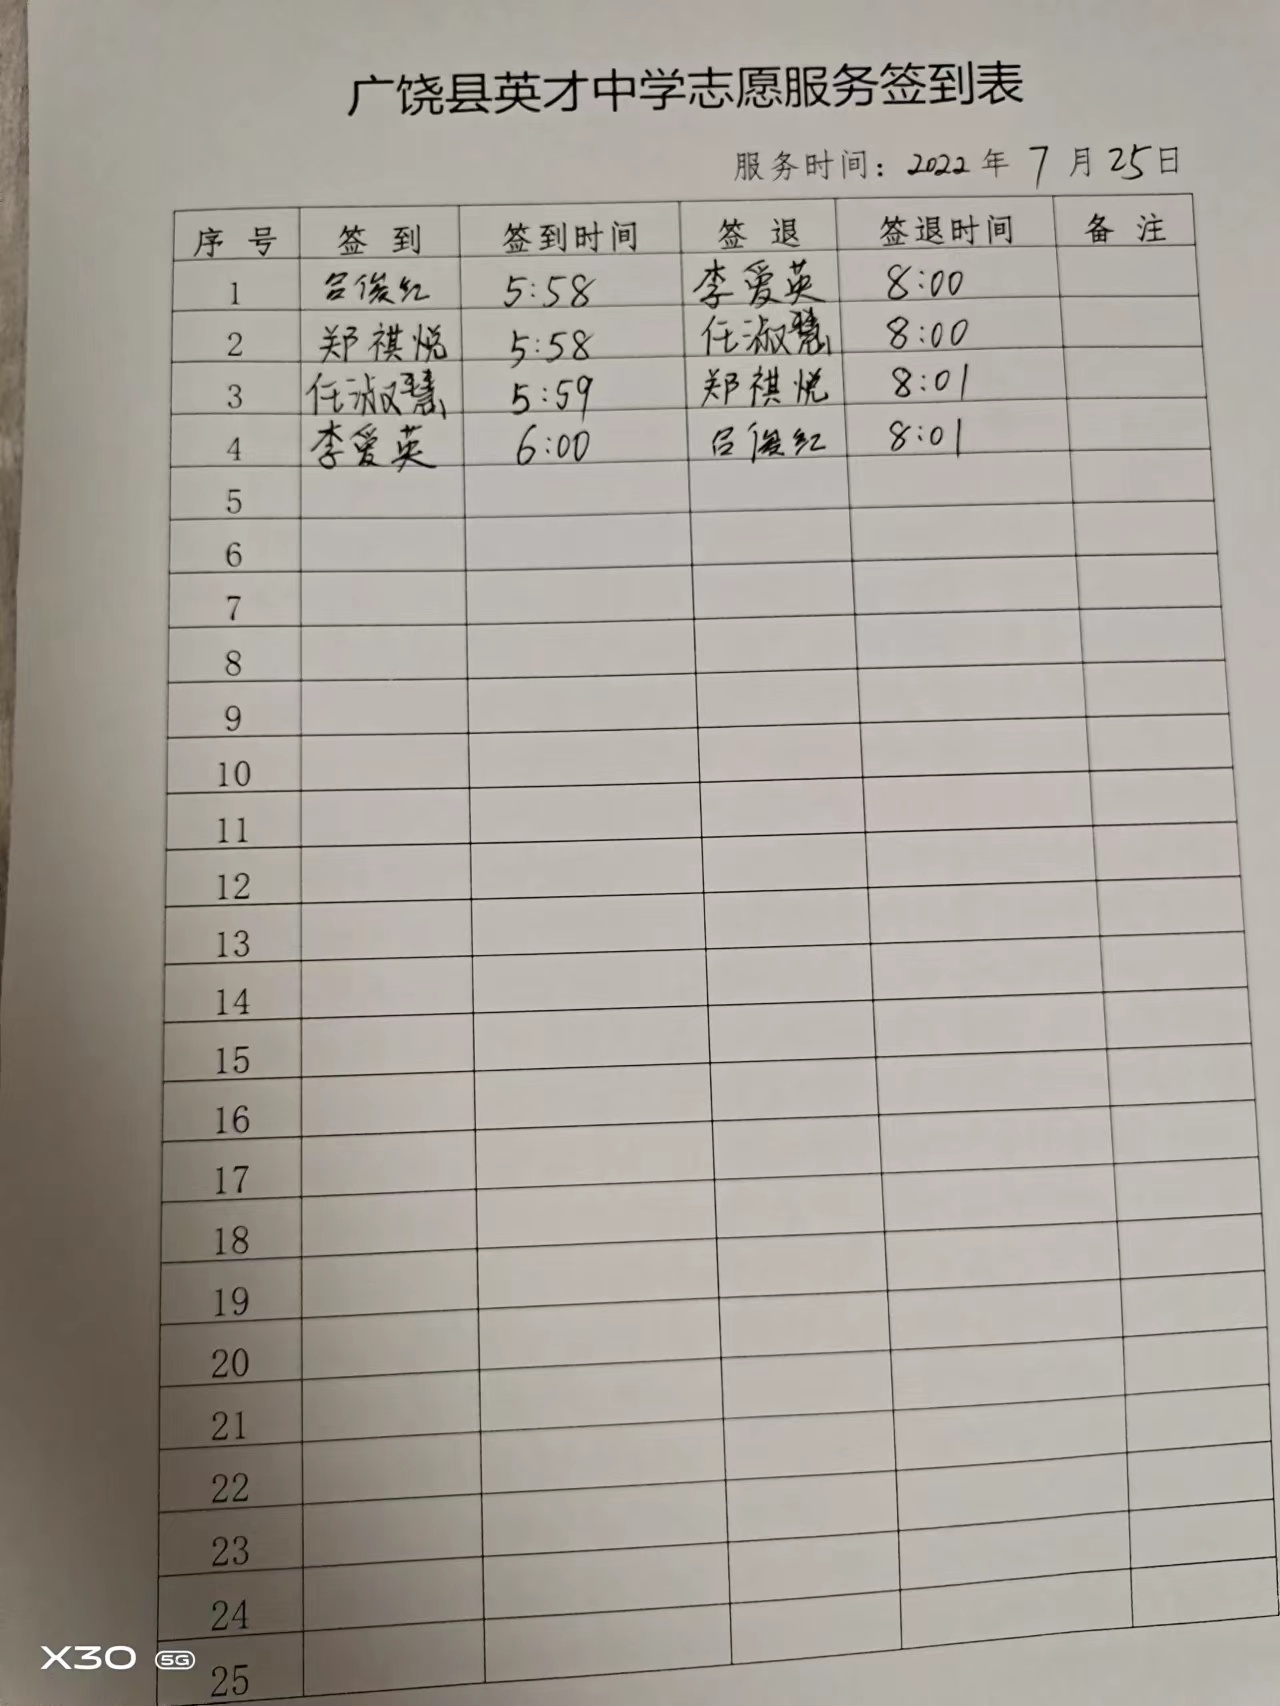 广饶县英才中学志愿服务签到表
服务时间：2022年7月25日
序号 签到 签到时间 签退 签退时间 备注
1 吕俊红 5:58 李爱英 8:00
2 郑祺悦 5:58 任淑慧 8:00
3 任淑慧 5:59 郑祺悦 8:01
4 李爱英 6:00 吕俊红 8:01
5
6
7
8
9
10
11
12
13
14
15
16
17
18
19
20
21
22
23
24
25
X30 5G